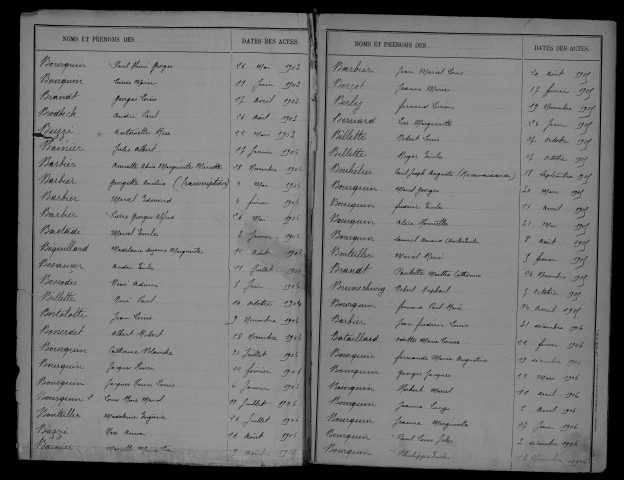 NOMS ET PRÉNOMS DES. DATES DES ACTES.
Bourquin Paul Henri Georges 26 Mai 1903
Bourquin Louis Marie 11 Juin 1903
Brandt Georges Louis 17 Avril 1903
Brodbeck André Paul 26 Août 1903
Buzzi Antoinette Rose 22 Mai 1903
Bainier Jules Albert 17 Janvier 1904
Barbier Marguerite Mariette 28 Novembre 1904
Barbier Georgette (Transcription) 4 Mai 1904
Barbier Marcel Edouard 4 février 1904
Barbier Pierre Georges Alfred 26 Mai 1904
Bastady Marcel Emile 2 Janvier 1904
Béguillard Madeleine Suzanne Marguerite 10 Août 1904
Besançon André Emile 11 Juillet 1904
Bessodes René 8 Juin 1904
Billotte René Paul 10 octobre 1904
Jean Louis 9 Novembre 1904
Bonnerdet Albert Robert 18 Novembre 1904
Bourquin Catherine Blanche 21 Juillet 1904
Bourquin Jacques Pierre 22 février 1904
Bourquin Jacques Pierre Louis 6 Janvier 1904
Bourquin Louis René Marcel 19 Juillet 1904
Bouteiller Madeleine Eugénie 14 Juillet 1904
Buzzi Rose Anna 16 Août 1904
Bainier Marcelle 9 Août 1905
NOMS ET PRÉNOMS DES. DATES DES ACTES.
Barbier Jean Marcel Louis 20 août 1905
Bercot Jeanne Marie 17 février 1905
Berly Fernand Lucien 29 Novembre 1905
Bernard Luc Marguerite 24 Juin 1905
Billotte Robert Louis 15 octobre 1905
Billotte Roger Emile 15 octobre 1905
Bonhôtier Paul Joseph Auguste (Reconnaissance) 18 Septembre 1905
Bourquin Marcel Georges 20 Mars 1905
Bourquin Emile 12 Avril 1905
Bourquin Alice Henriette 21 Mai 1905
Bourquin Samuel Armand 8 Août 1905
Bouteiller Marcel René 3 février 1905
Brandt Paulette Marthe Catherine 26 Novembre 1905
Brunschwig Robert Raphaël 4 octobre 1905
Bourquin Fernand Paul René 24 Avril 1905
Barbier Jean Frédéric Louis 31 décembre 1906
Bataillard Odette Marie Louise 22 février 1906
Bourquin Fernande Marie Augustine 19 décembre 1906
Bourquin Georges Jacques 12 Mars 1906
Bourquin Herbert Marcel 11 Avril 1906
Bourquin Jeanne 2 Avril 1906
Bourquin Jeanne Marguerite 17 Juin 1906
Bourquin Paul Louis Jules 2 décembre 1906
Bourquin Philippe Emile 18 Novembre 1906